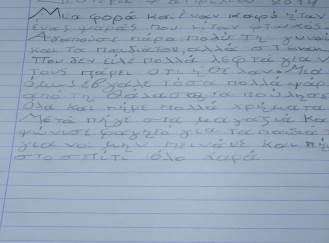 Μια φορά και έναν καιρό ήταν
ένας ψαράς που ήταν
Αγαπούσε πάρα πολύ τη γυναί
και τα παιδιά του, αλλά ο
που δεν είχε πολλά λεφτά για ν
τους πάρει ότι ήθελαν. Μια
όμως έβγαλε τόσα πολλά ψάρ
από τη θάλασσα, τα πούλησε
όλα και πήρε πολλά χρήματα
Μετά πήγε στα μαγαζιά κα
ψώνισε φαγητό για τα παιδιά
για να μην πεινάνε και πή
στο σπίτι όλο χαρά